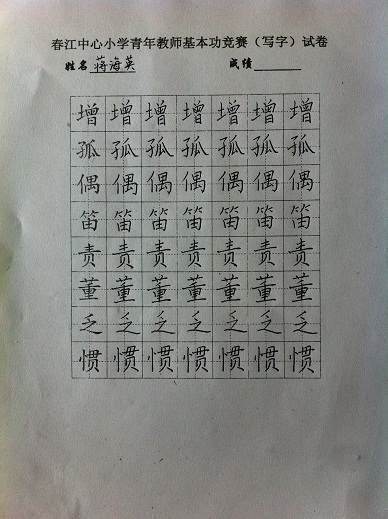 春江中心小学青年教师基本功竞赛（写字）试卷
姓名 蒋海英 成绩
增 增 增 增 增 增 增
孤 孤 孤 孤 孤 孤 孤
偶 偶 偶 偶 偶 偶 偶
笛 笛 笛 笛 笛 笛 笛
责 责 责 责 责 责 责
董 董 董 董 董 董 董
乏 乏 乏 乏 乏 乏 乏
惯 惯 惯 惯 惯 惯 惯